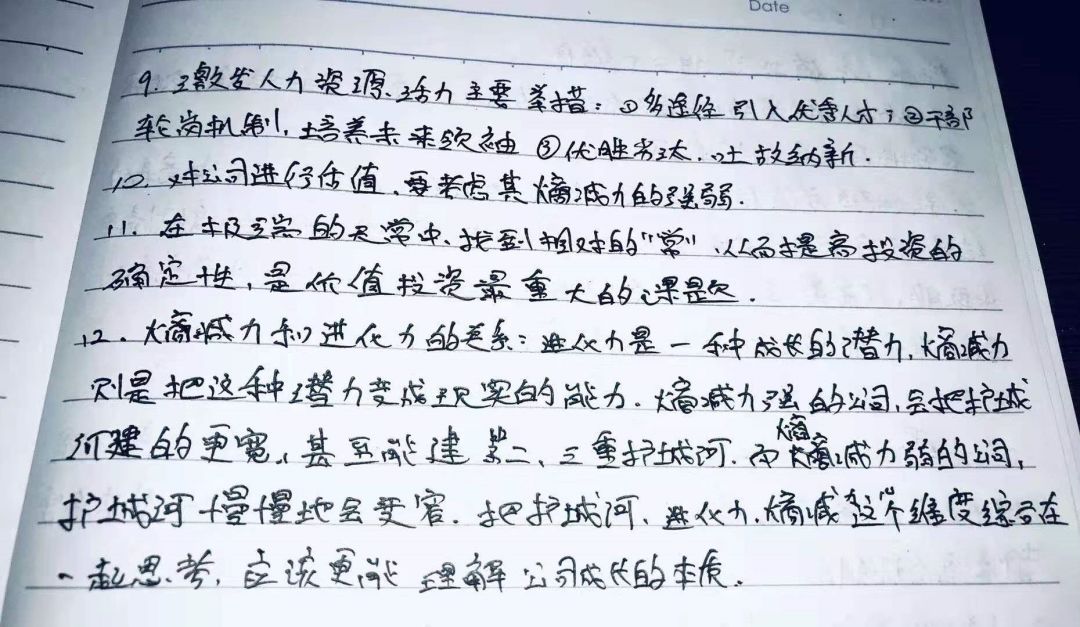 Date
9. 激发人力资源活力主要举措：①多途径引入优秀人才；②干部
轮岗机制，培养未来领袖 ③优胜劣汰，吐故纳新.
10. 对公司进行估值，要考虑其熵减力的强弱.
11. 在极端的无常中，找到相对的“常”，从而提高投资的
确定性，是价值投资最重大的课题.
12. 熵减力和进化力的关系：进化力是一种成长的潜力，熵减力
则是把这种潜力变成现实的能力. 熵减力强的公司，会把护城
河建的更宽，甚至能建第二、三重护城河. 而熵减力弱的公司，
护城河慢慢地会变窄. 把护城河、进化力、熵减力这个维度综合在
一起思考，应该更能理解公司成长的本质.